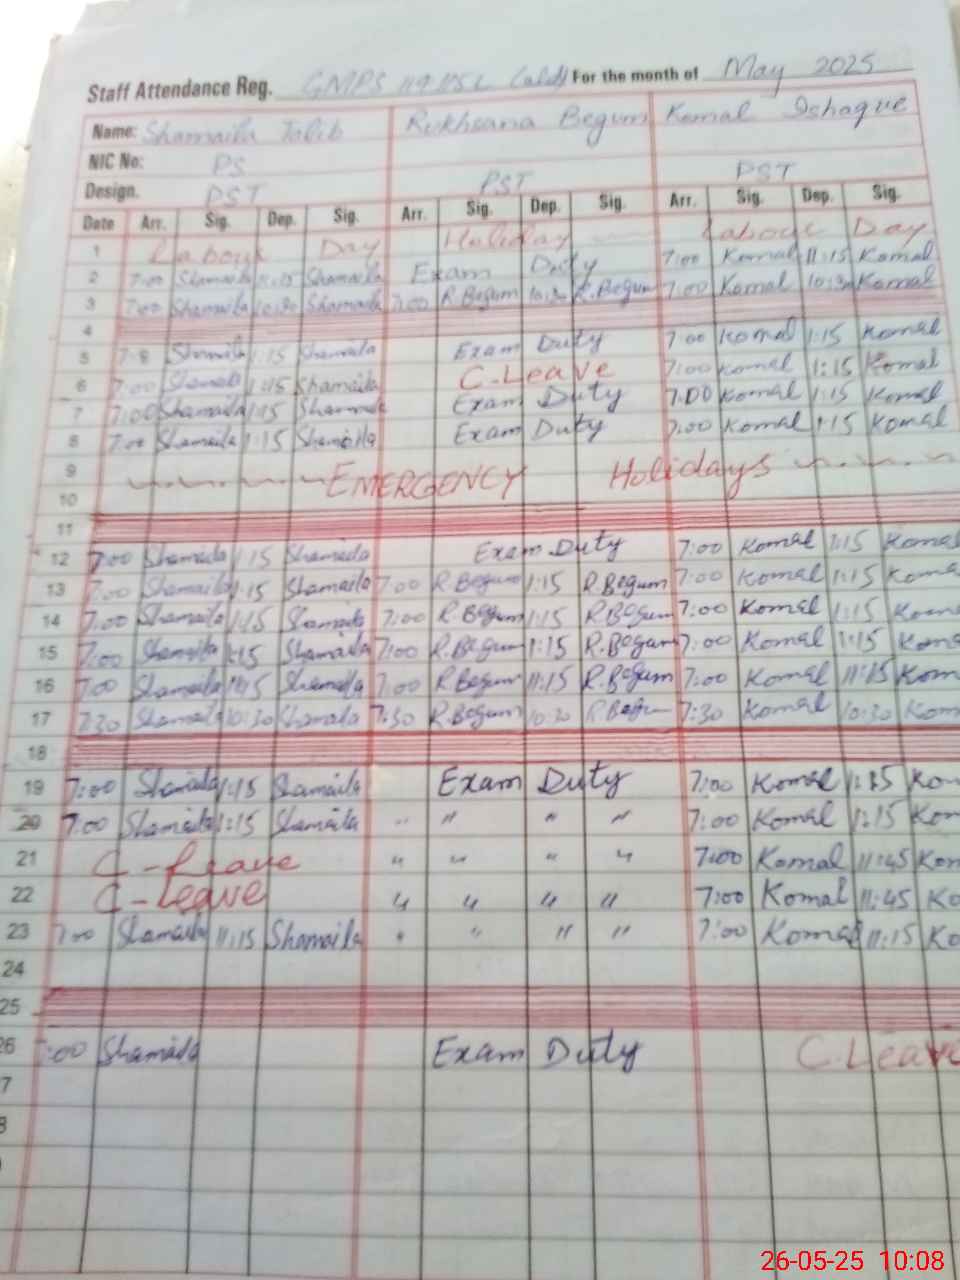 Staff Attendance Reg. GMPS 119 15L (old) For the month of May 2025
Name: Shamaila Talib Rukhsana Begum Komal Ishaque
NIC No: PS
Design. PST PST PST
Date Arr. Sig. Dep. Sig. Arr. Sig. Dep. Sig. Arr. Sig. Dep. Sig.
1 Labour Day Holiday Labour Day
2 7:00 Shamaila 11:15 Shamaila Exam Duty 7:00 Komal 11:15 Komal
3 7:00 Shamaila 10:30 Shamaila 7:00 R.Begum 10:30 R.Begum 7:00 Komal 10:30 Komal
4
5 Shamaila 1:15 Shamaila Exam Duty 7:00 Komal 1:15 Komal
6 7:00 Shamaila 1:15 Shamaila C.Leave 7:00 Komal 1:15 Komal
7 7:00 Shamaila 1:15 Shamaila Exam Duty 7:00 Komal 1:15 Komal
8 7:00 Shamaila 1:15 Shamaila Exam Duty 7:00 Komal 1:15 Komal
9 EMERGENCY Holidays
10
11
12 7:00 Shamaila 1:15 Shamaila Exam Duty 7:00 Komal 1:15 Komal
13 7:00 Shamaila 1:15 Shamaila 7:00 R.Begum 1:15 R.Begum 7:00 Komal 1:15 Koma
14 7:00 Shamaila 1:15 Shamaila 7:00 R.Begum 1:15 R.Begum 7:00 Komal 1:15 Koma
15 7:00 Shamaila 1:15 Shamaila 7:00 R.Begum 1:15 R.Begum 7:00 Komal 1:15 Koma
16 7:00 Shamaila 11:15 Shamaila 7:00 R.Begum 11:15 R.Begum 7:00 Komal 11:15 Kom
17 7:30 Shamaila 10:30 Shamaila 7:30 R.Begum 10:30 R.Begum 7:30 Komal 10:30 Kom
18
19 7:00 Shamaila 1:15 Shamaila Exam Duty 7:00 Komal 1:15 Kom
20 7:00 Shamaila 1:15 Shamaila " " " " 7:00 Komal 1:15 Kom
21 C-Leave " " " " 7:00 Komal 11:45 Kom
22 C-Leave " " " " 7:00 Komal 11:45 Ko
23 7:00 Shamaila 11:15 Shamaila " " " " 7:00 Komal 11:15 Ko
24
25
26 7:00 Shamaila Exam Duty C.Leave
7
8
26-05-25 10:08